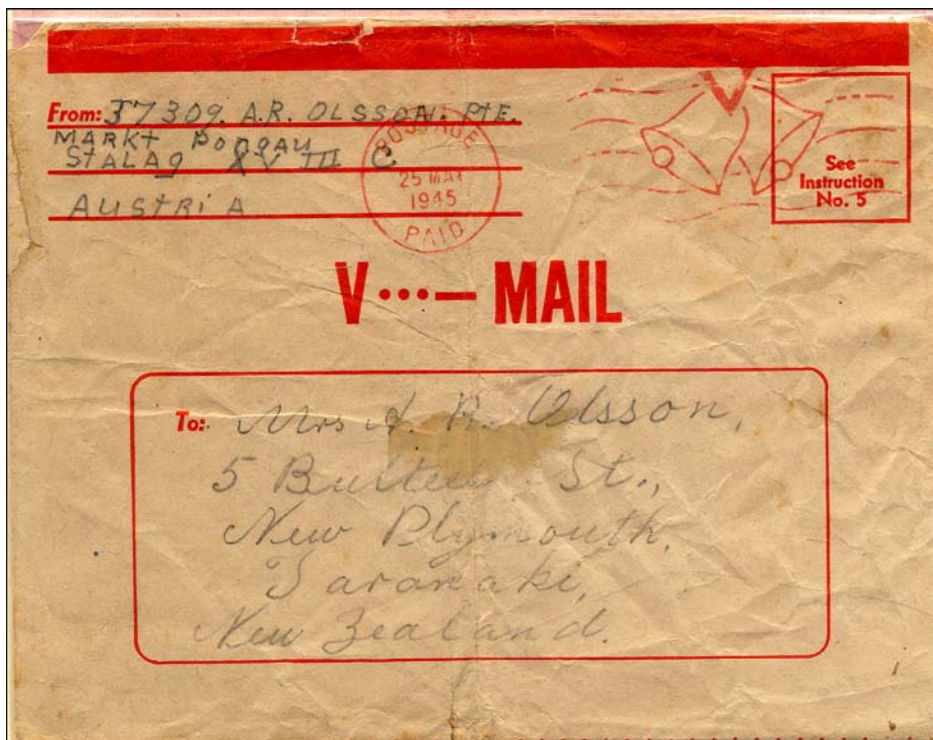 From: 37309. A.R. OLSSON. PtE.
MARKt PONGAU
StALAg XVIII C
AUStRiA
POSTAGE
25 MAY
1945
PAID
See
Instruction
No. 5
V ···— MAIL
To: Mrs A. R. Olsson,
5 St.,
New Plymouth,
Taranaki,
New Zealand.